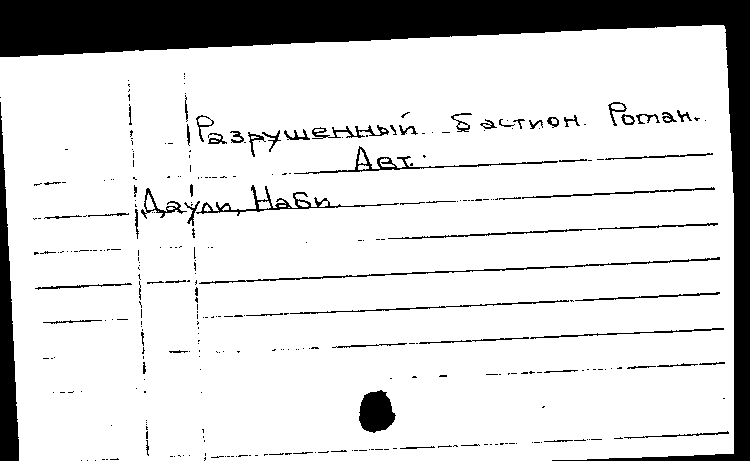 Разрушенный бастион. Роман.
Авт.
Даули, Наби.